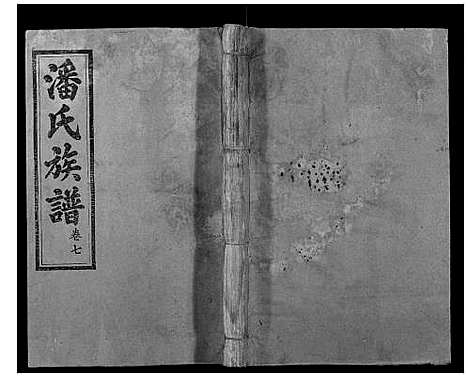 潘氏族譜
卷七